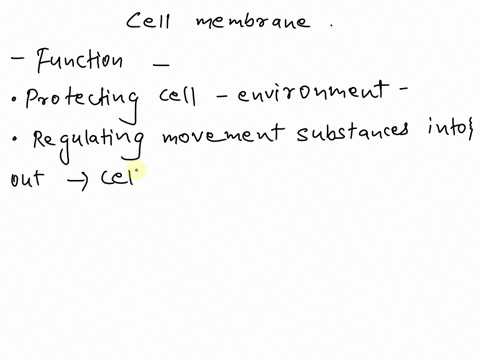 Cell membrane .
- Function -
• Protecting cell - environment -
• Regulating movement substances into}
out → cel